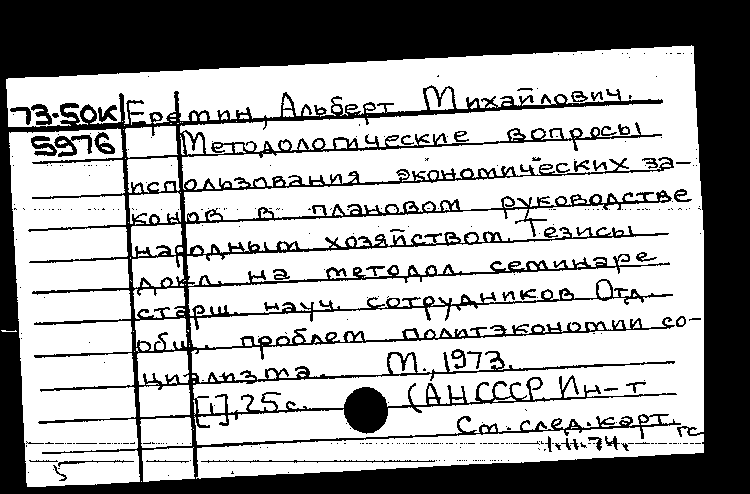 73-50К Еремин, Альберт Михайлович.
5976 Методологические вопросы
использования экономических за-
конов в плановом руководстве
народным хозяйством. Тезисы
докл. на методол. семинаре
старш. науч. сотрудников Отд.
общ. проблем политэкономии со-
циализма. М., 1973.
[1], 25 с. (АН СССР. Ин-т
См. след. карт.
1.11.74. гс
5